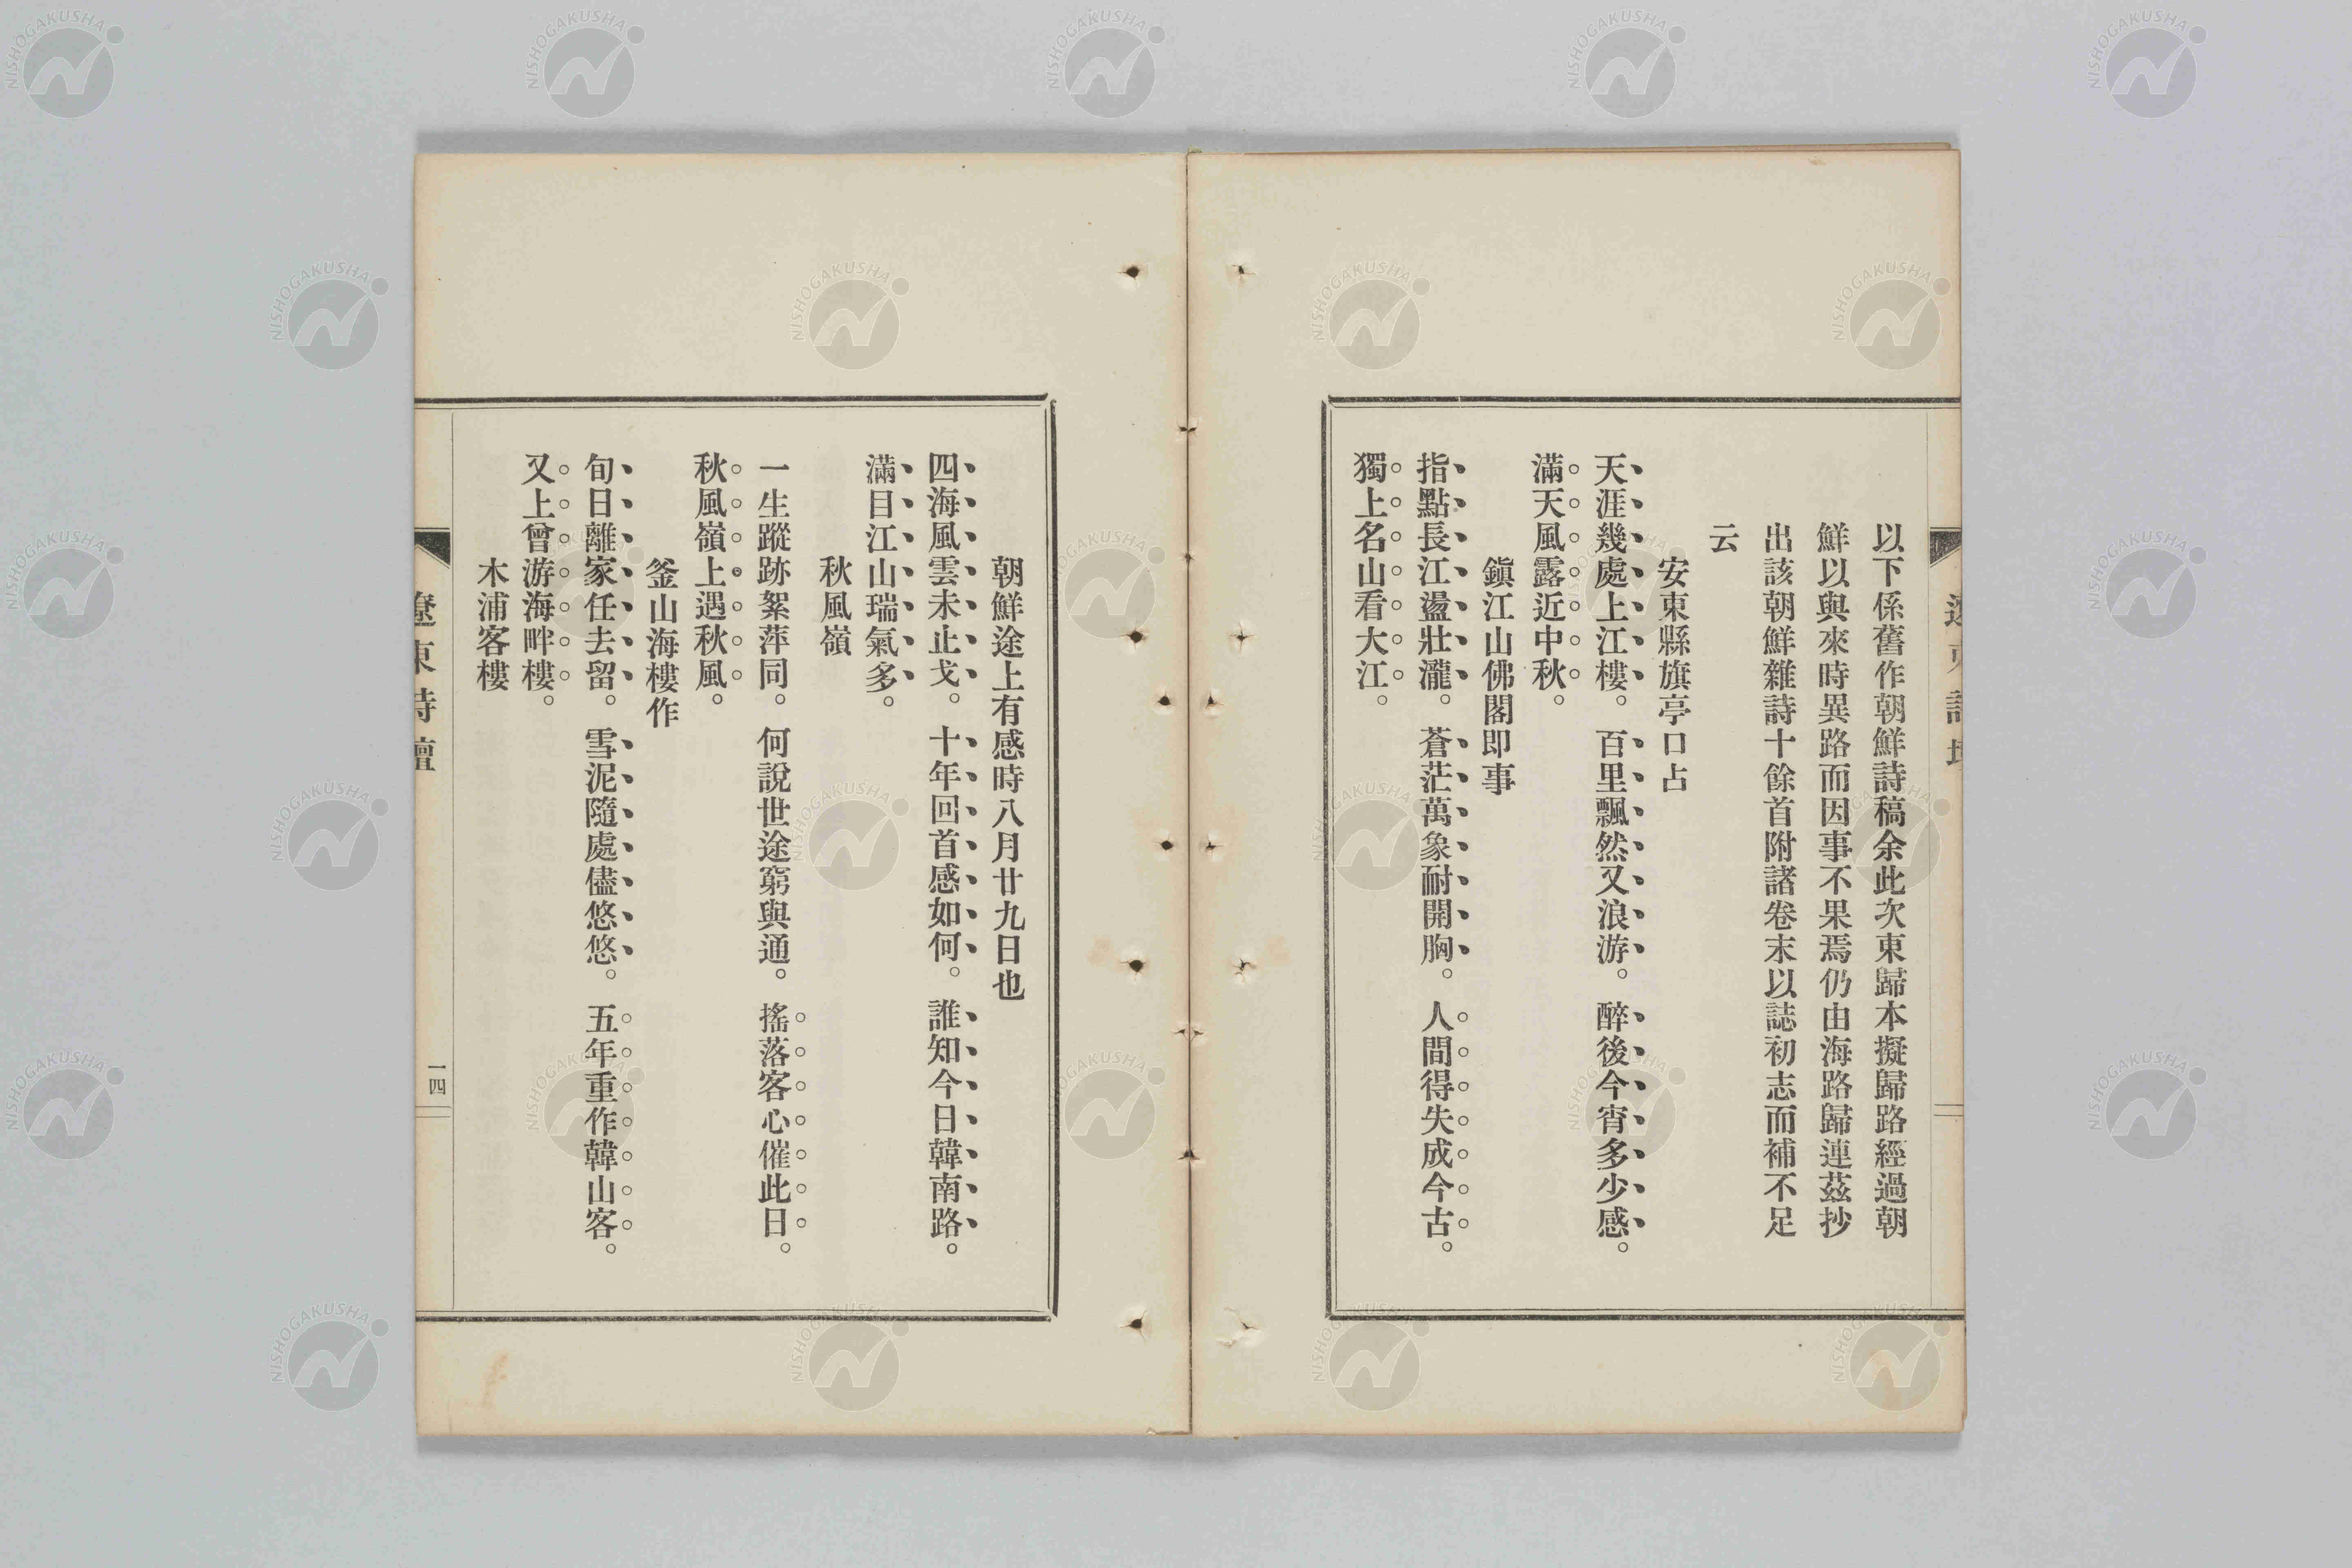 以下係舊作朝鮮詩稿余此次東歸本擬歸路經過朝
鮮以與來時異路而因事不果焉仍由海路歸連茲抄
出該朝鮮雜詩十餘首附諸卷末以誌初志而補不足
云
安東縣旗亭口占
天涯幾處上江樓。百里飄然又浪游。醉後今宵多少感。
滿天風露近中秋。
鎭江山佛閣即事
指點長江盪壯瀧。蒼茫萬象耐開胸。人間得失成今古。
獨上名山看大江。
朝鮮途上有感時八月廿九日也
四海風雲未止戈。十年回首感如何。誰知今日韓南路。
滿目江山瑞氣多。
秋風嶺
一生蹤跡絮萍同。何說世途窮與通。搖落客心催此日。
秋風嶺上遇秋風。
釜山海樓作
旬日離家任去留。雪泥隨處儘悠悠。五年重作韓山客。
又上曾游海畔樓。
木浦客樓
遼東詩壇
一四
NISHOGAKUSHA